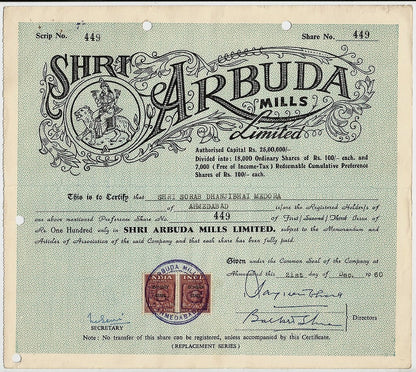 Scrip No. 449 Share No. 449
SHRI ARBUDA
MILLS
Limited
Authorised Capital Rs. 25,00,000/-
Divided into: 18,000 Ordinary Shares of Rs. 100/- each. and
7,000 (Free of Income-Tax) Redeemable Cumulative Preference
Shares of Rs. 100/- each.
This is to Certify that SHRI SORAB DHANJIBHAI MADORA
of AHMEDABAD is/are the Registered Holder/s of
one above mentioned Preference Share No. 449 of First/Second/Third Issue of
Rs. One Hundred only in SHRI ARBUDA MILLS LIMITED, subject to the Memorandum and
Articles of Association of the said Company and that each share has been fully paid.
Given under the Common Seal of the Company at
Ahmedabad this 21st day of Dec. 1960
ARBUDA MILLS
AHMEDABAD
INDIA INDIA
SECRETARY
Directors
Note: No transfer of this share can be registered, unless accompanied by this Certificate.
(REPLACEMENT SERIES)